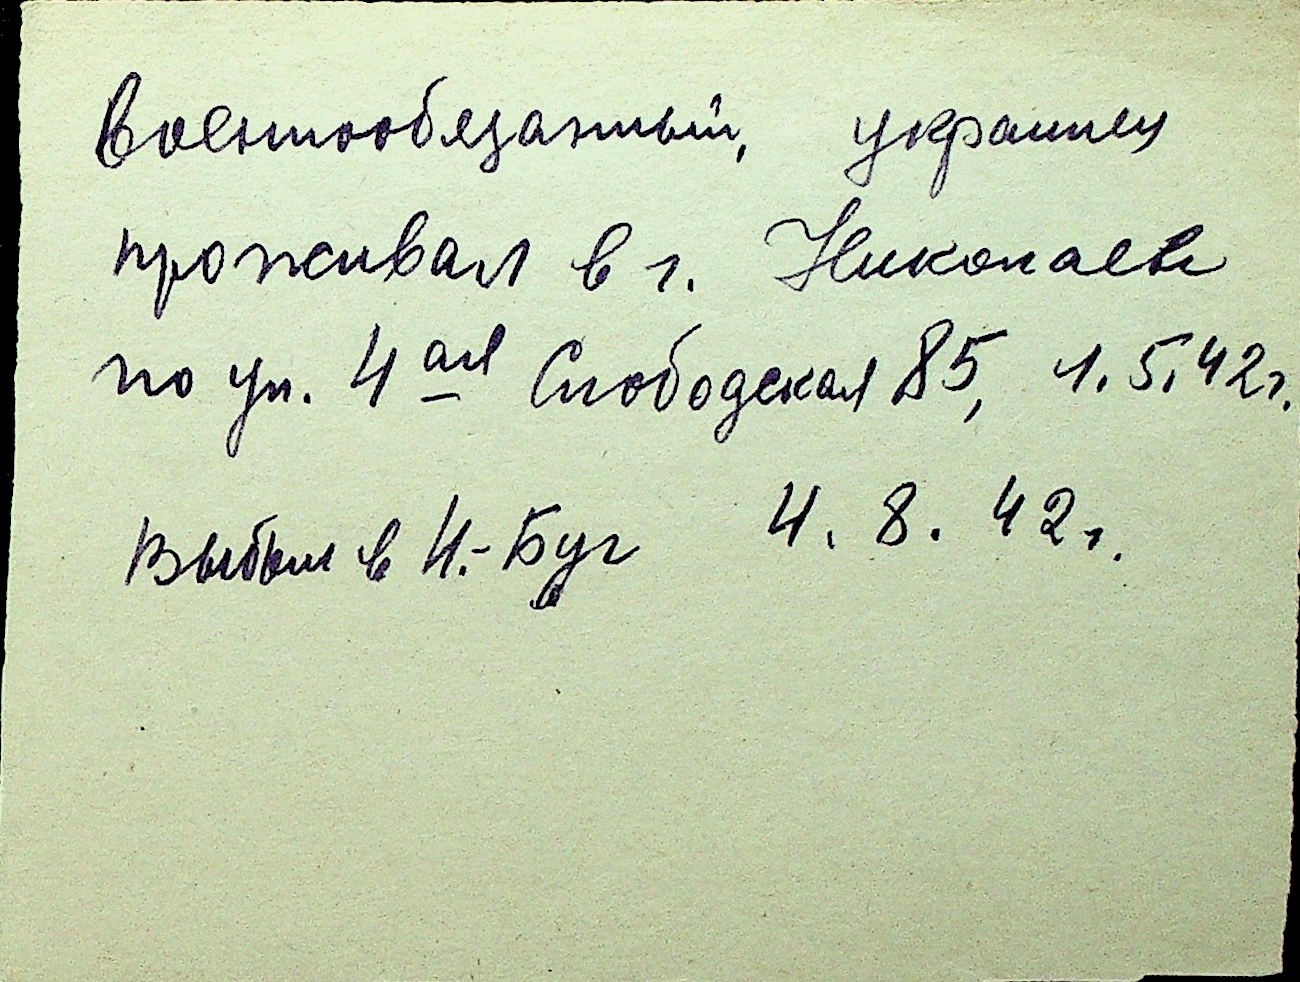 Военнообязанный, украинец
проживал в г. Николаеве
по ул. 4ая Слободская 85, 1.5.42г.
Выбыл в Н.-Буг 4.8.42г.